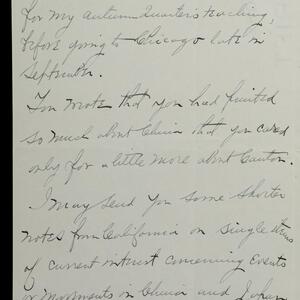 for my Autumn Quarter's teaching,
before going to Chicago late in
September.
You wrote that you had printed
so much about China that you cared
only for a little more about Canton.
I may send you some shorter
notes from California on single items
of current interest concerning Events
or Movements in China and when